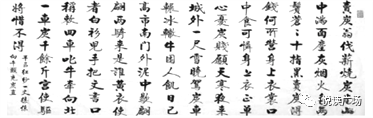 賣炭翁伐薪燒炭南山
中滿面塵灰煙火色兩
鬢蒼蒼十指黑賣炭得
錢何所營身上衣裳口
中食可憐身上衣正單
心憂炭賤願天寒夜來
城外一尺雪曉駕炭車
輾冰轍牛困人飢日已
高市南門外泥中歇翩
翩兩騎來是誰黃衣使
者白衫兒手把文書口
稱敕回車叱牛牽向北
一車炭千餘斤宮使驅
將惜不得
半匹紅紗一丈綾繫
向牛頭充炭直